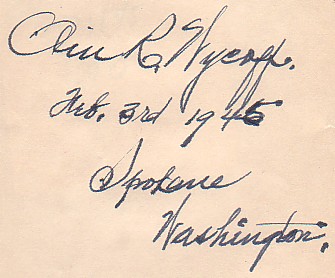 Orin R. Wycoff.
Feb. 3rd 1945
Spokane
Washington.